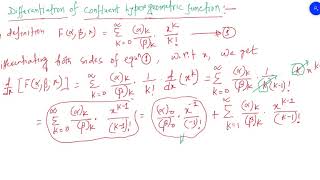 Differentiation of Confluent hypergeometric function:—
definition F(α,β,x) = ∑_{k=0}^{∞} (α)_k/(β)_k · x^k/k! —①
entiating both sides of eqn ①, w.r.t x, we get
d/dx [F(α,β,x)] = ∑_{k=0}^{∞} (α)_k/(β)_k · 1/k! · d/dx (x^k) = ∑_{k=0}^{∞} (α)_k/(β)_k · 1/(k-1)! x^{k-
= ∑_{k=0}^{∞} (α)_k/(β)_k · x^{k-1}/(k-1)! = (α)_0/(β)_0 · x^{-1}/(-1)! + ∑_{k=1}^{∞} (α)_k/(β)_k · x^{k-1}/(k-1)!